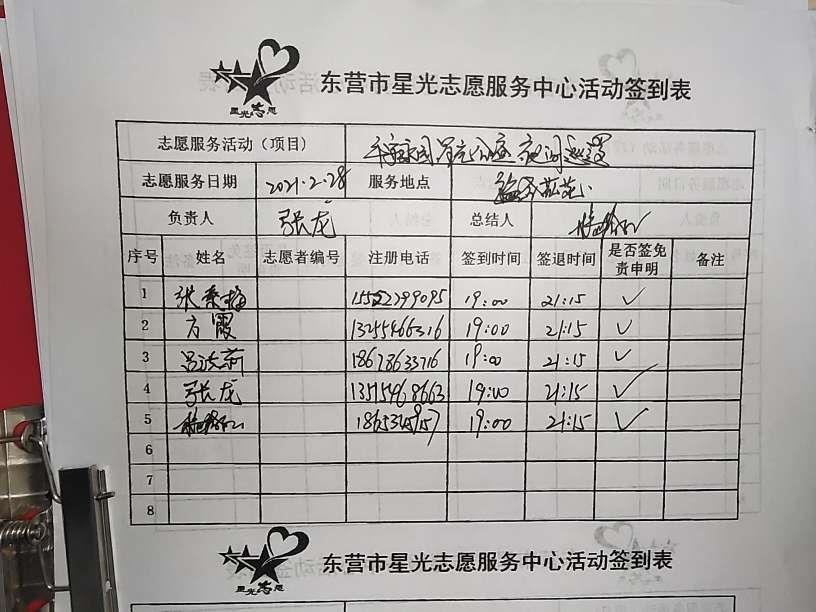 星光志愿
东营市星光志愿服务中心活动签到表
志愿服务活动（项目） 星光公益 夜间巡逻
志愿服务日期 2021.2.28 服务地点
负责人 张龙 总结人
序号 姓名 志愿者编号 注册电话 签到时间 签退时间 是否签免责申明 备注
1 张 梅 15522799095 19:00 21:15 ✓
2 方霞 13255466316 19:00 21:15 ✓
3 18678633716 19:00 21:15 ✓
4 张龙 13515468663 19:00 21:15 ✓
5 19:00 21:15 ✓
6
7
8
星光志愿
东营市星光志愿服务中心活动签到表